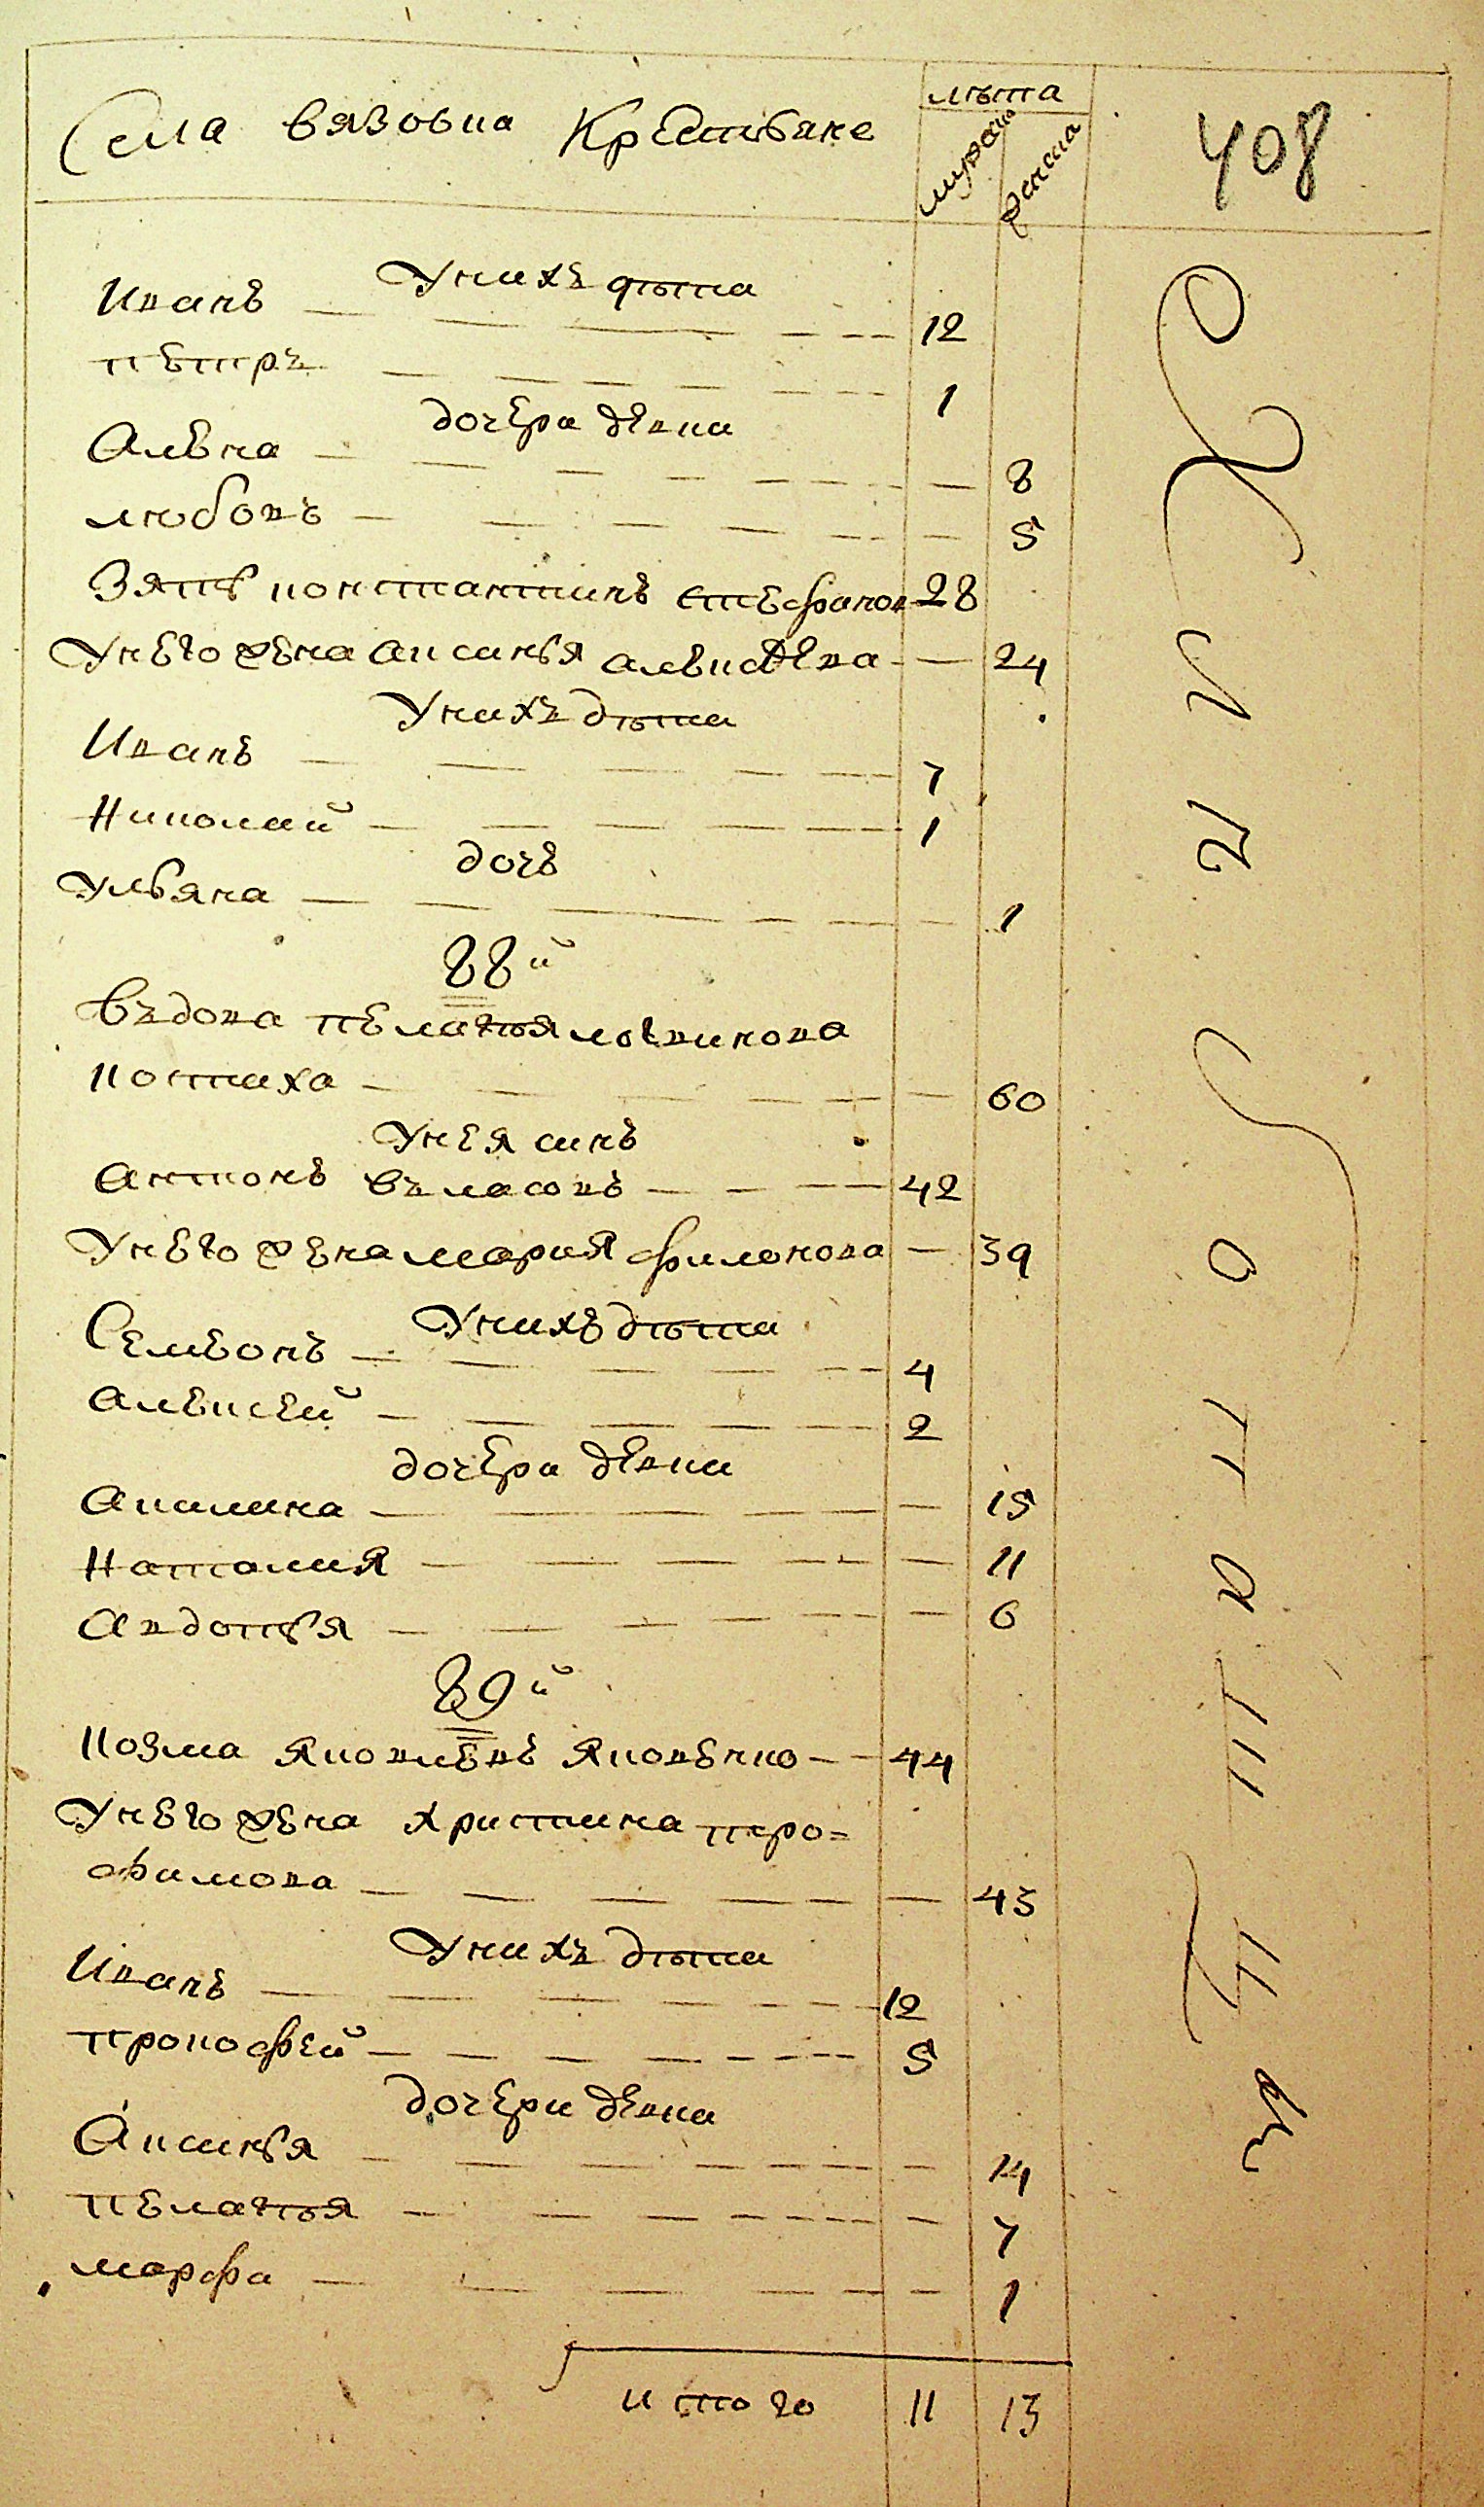 лѣта
Села вязовка Крестьяне
мужеск
женска
408
У нихъ дѣти
Иванъ 12
петръ 1
дочери девки
Алена 8
любовь 5
Зять константинъ стефанов 28
У него жена аксинья алексѣева 24
У нихъ дѣти
Иванъ 7
Николай 1
дочь
Ульяна 1
88й
въдова пелагѣя
костиха 60
У нея синъ
антонъ въласовъ 42
У него жена мария филонова 39
У нихъ дѣти
Семѣонъ 4
алексей 2
дочери девки
акилина 15
Наталия 11
авдотья 6
89й
козма яковлевъ яковенко 44
У него жена христина тро=
фимова 43
У нихъ дѣти
Иванъ 12
прокофей 5
дочери девки
Аксинья 14
пелагѣя 7
марфа 1
итого 11 13